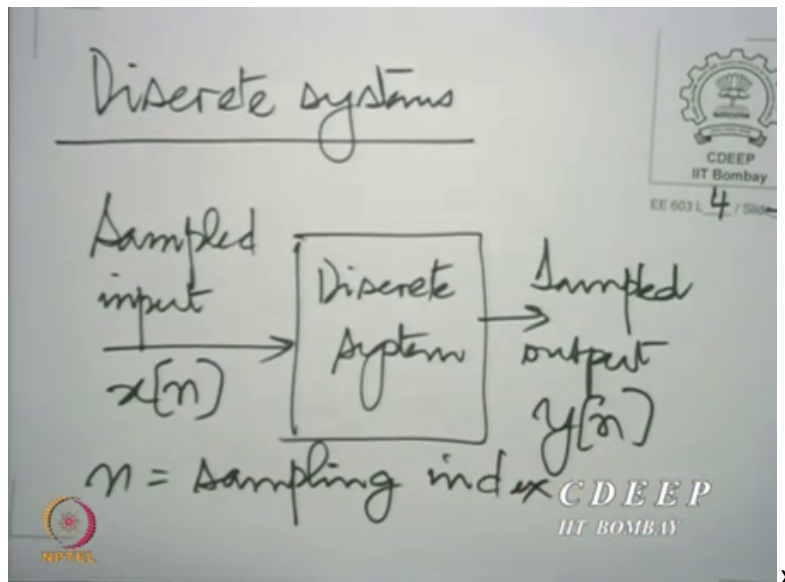 Discrete systems
CDEEP
IIT Bombay
EE 603 L 4 / Slide
Sampled input
x[n]
Discrete system
Sampled output
y[n]
n = sampling index
CDEEP
IIT BOMBAY
NPTEL